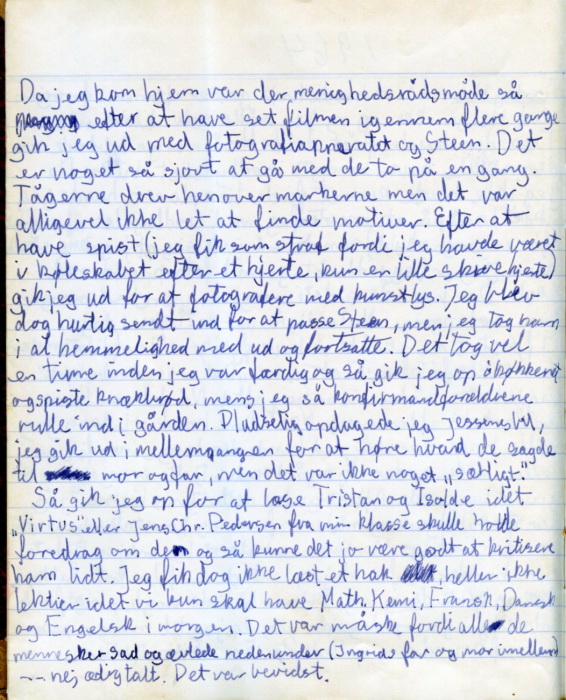 Da jeg kom hjem var der menighedsrådsmøde så
efter at have set filmen igennem flere gange
gik jeg ud med fotografiapparatet og Steen. Det
er noget så sjovt at gå med de to på en gang.
Tågerne drev henover markerne men det var
alligevel ikke let at finde motiver. Efter at
have spist (jeg fik som straf fordi jeg havde været
i køleskabet efter et hjerte, kun en lille skive hjerte)
gik jeg ud for at fotografere med kunstlys. Jeg blev
dog hurtig sendt ind for at passe Steen, men jeg tog ham
i al hemmelighed med ud og fortsatte. Det tog vel
en time inden jeg var færdig og så gik jeg op i køkkenet
og spiste knækbrød, mens jeg så konfirmandforældrene
rulle ind i gården. Pludselig opdagede jeg Jessens bil,
jeg gik ud i mellemgangen for at høre hvad de sagde
til mor og far, men det var ikke noget „særligt."
Så gik jeg op for at læse Tristan og Isolde idet
„Virtus" eller Jens Chr. Pedersen fra min klasse skulle holde
foredrag om den og så kunne det jo være godt at kritisere
ham lidt. Jeg fik dog ikke læst et hak, heller ikke
lektier idet vi kun skal have Math, Kemi, Fransk, Dansk
og Engelsk i morgen. Det var måske fordi alle de
mennesker sad og ævlede nedenunder (Ingrids far og mor imellem)
-- nej, ædig talt. Det var bevidst.